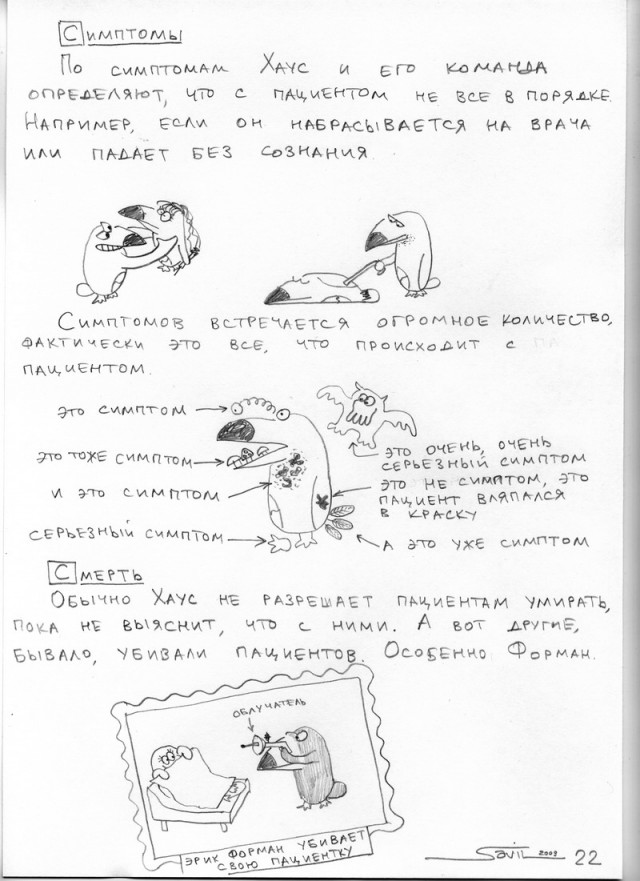 Симптомы
По симптомам Хаус и его команда
определяют, что с пациентом не все в порядке.
Например, если он набрасывается на врача
или падает без сознания.
Симптомов встречается огромное количество,
фактически это все, что происходит с
пациентом.
это симптом
это тоже симптом
и это симптом
серьезный симптом
это очень, очень
серьезный симптом
это не симптом, это
пациент вляпался
в краску
а это уже симптом
Смерть
Обычно Хаус не разрешает пациентам умирать,
пока не выяснит, что с ними. А вот другие,
бывало, убивали пациентов. Особенно Форман.
облучатель
Эрик Форман убивает
свою пациентку
Savil 2009
22